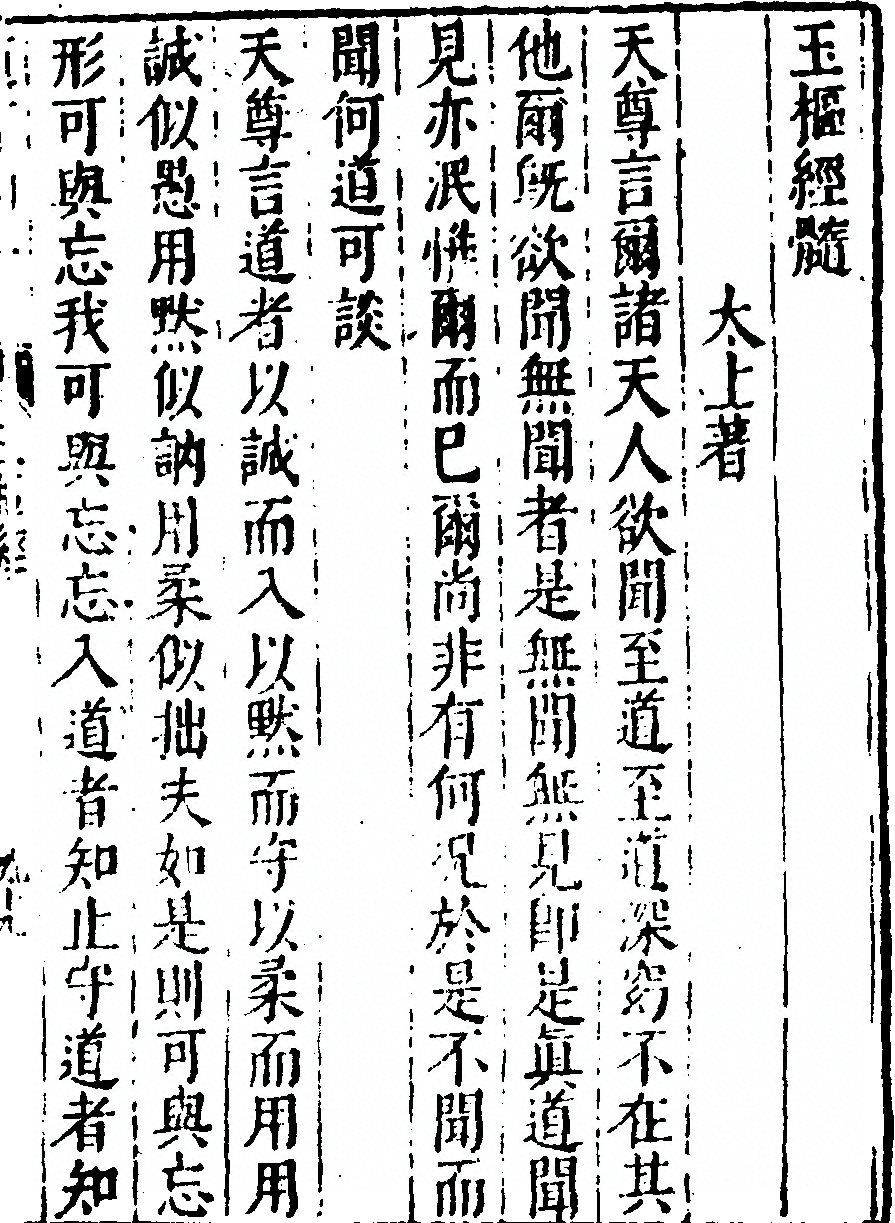 玉樞經髓
太上著
天尊言爾諸天人欲聞至道至道深窈不在其
他爾旣欲聞無聞者是無聞無見卽是眞道聞
見亦泯惟爾而已爾尚非有何况於是不聞而
聞何道可談
天尊言道者以誠而入以黙而守以柔而用用
誠似愚用黙似訥用柔似拙夫如是則可與忘
形可與忘我可與忘忘入道者知止守道者知